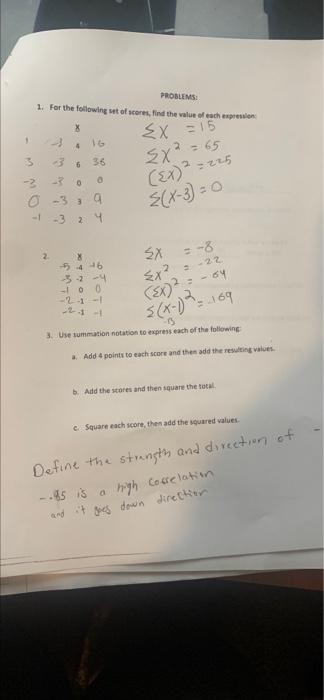 PROBLEMS:
1. For the following set of scores, find the value of each expression:
X ΣX = 15
1 -3 4 16 ΣX² = 65
3 -3 6 36 (ΣX)² = 225
-3 -3 0 0 Σ(X-3) = 0
0 -3 3 9
-1 -3 2 4
2. X ΣX = -8
-5 -4 -16 ΣX² = -22
-3 -2 -4 (ΣX)² = -64
-1 0 0 Σ(X-1)² = -169
-2 -1 -1 -13
-2 -1 -1
3. Use summation notation to express each of the following:
a. Add 4 points to each score and then add the resulting values.
b. Add the scores and then square the total.
c. Square each score, then add the squared values.
Define the strength and direction of -
-.85 is a high correlation
and it goes down direction